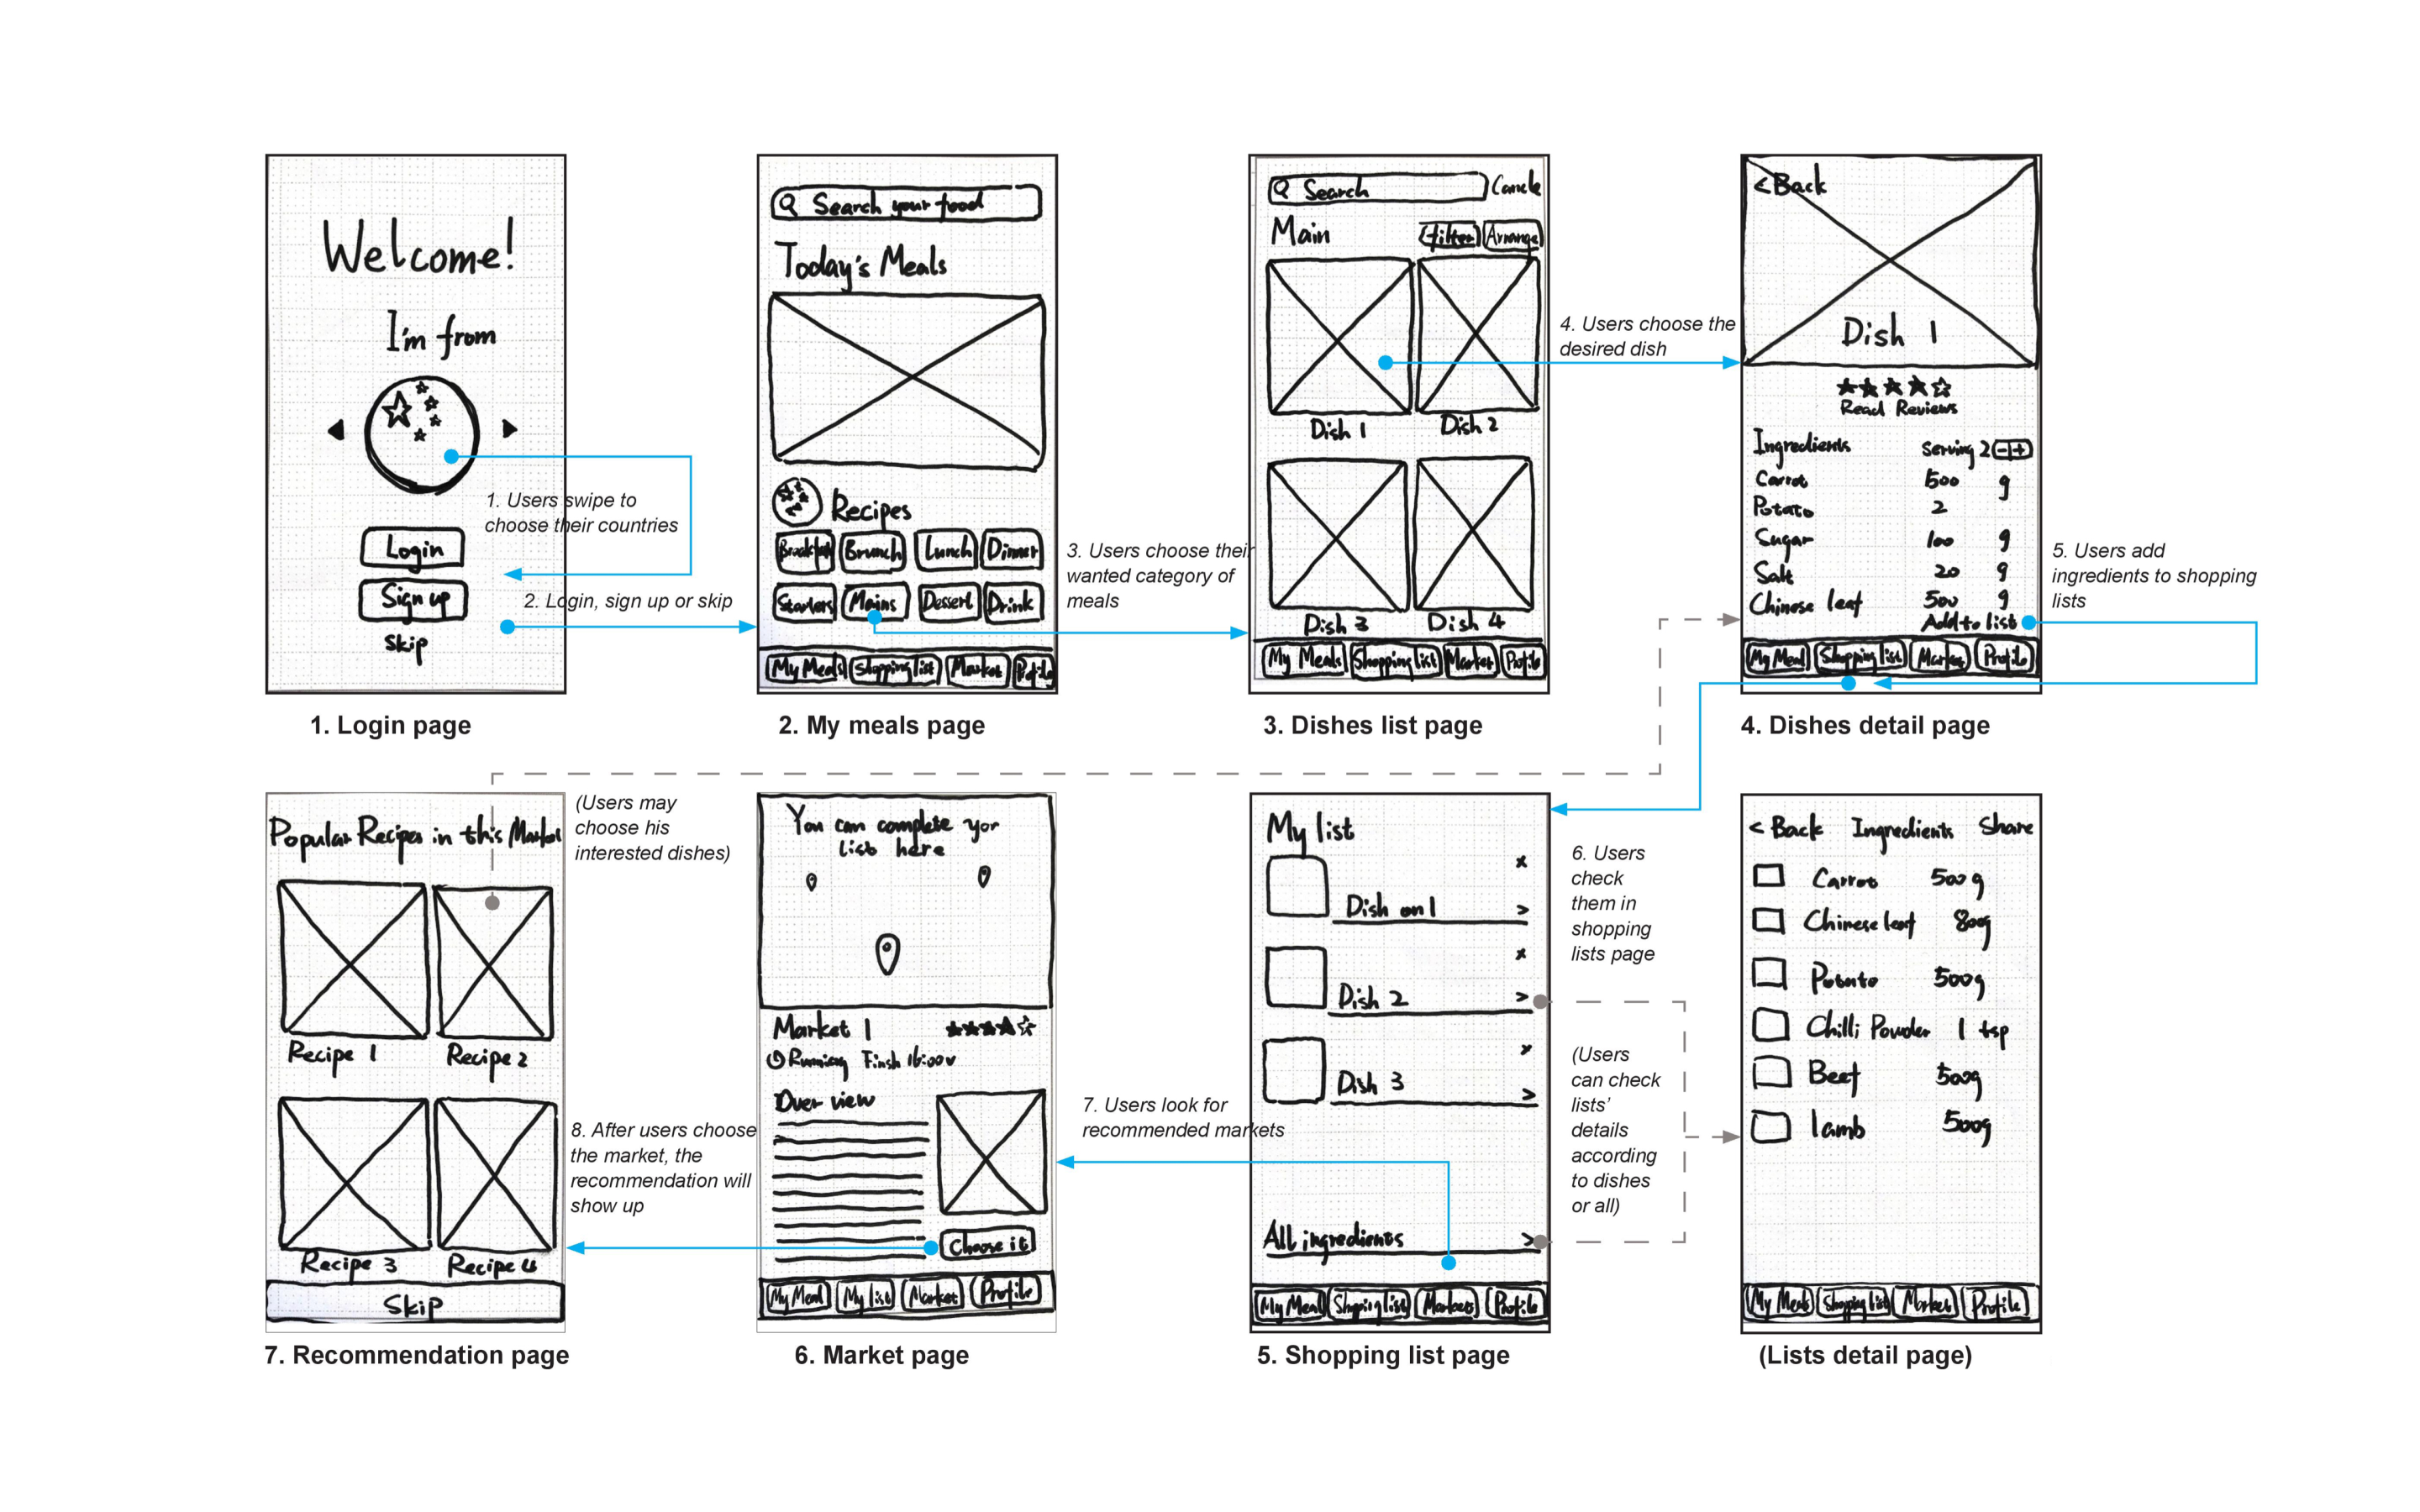 Welcome!
I'm from
Login
Sign up
Skip
1. Users swipe to
choose their countries
2. Login, sign up or skip
1. Login page
Search your food
Today's Meals
Recipes
Breakfast Brunch Lunch Dinner
Starters Mains Dessert Drink
My Meals Shopping list Market Profile
2. My meals page
3. Users choose their
wanted category of
meals
Search Cancle
Main Filter Arrange
Dish 1 Dish 2
Dish 3 Dish 4
My Meals Shopping list Market Profile
3. Dishes list page
4. Users choose the
desired dish
<Back
Dish 1
Read Reviews
Ingredients Serving 2 - +
Carrot 500 g
Potato 2
Sugar 100 g
Salt 20 g
Chinese leaf 500 g
Add to list
My Meal Shopping list Market Profile
4. Dishes detail page
5. Users add
ingredients to shopping
lists
Popular Recipes in this Market
Recipe 1 Recipe 2
Recipe 3 Recipe 4
Skip
7. Recommendation page
(Users may
choose his
interested dishes)
8. After users choose
the market, the
recommendation will
show up
You can complete yor
list here
Market 1
Running Finsh 16:00
Over view
Choose it
My Meal My list Market Profile
6. Market page
7. Users look for
recommended markets
My list
x
Dish on 1 >
x
Dish 2 >
x
Dish 3 >
All ingredients >
My Meal Shoping list Markets Profile
5. Shopping list page
6. Users
check
them in
shopping
lists page
(Users
can check
lists'
details
according
to dishes
or all)
< Back Ingredients Share
Carrot 500g
Chinese leaf 800g
Potato 500g
Chilli Powder 1 tsp
Beef 500g
lamb 500g
My Meals Shopping list Market Profile
(Lists detail page)